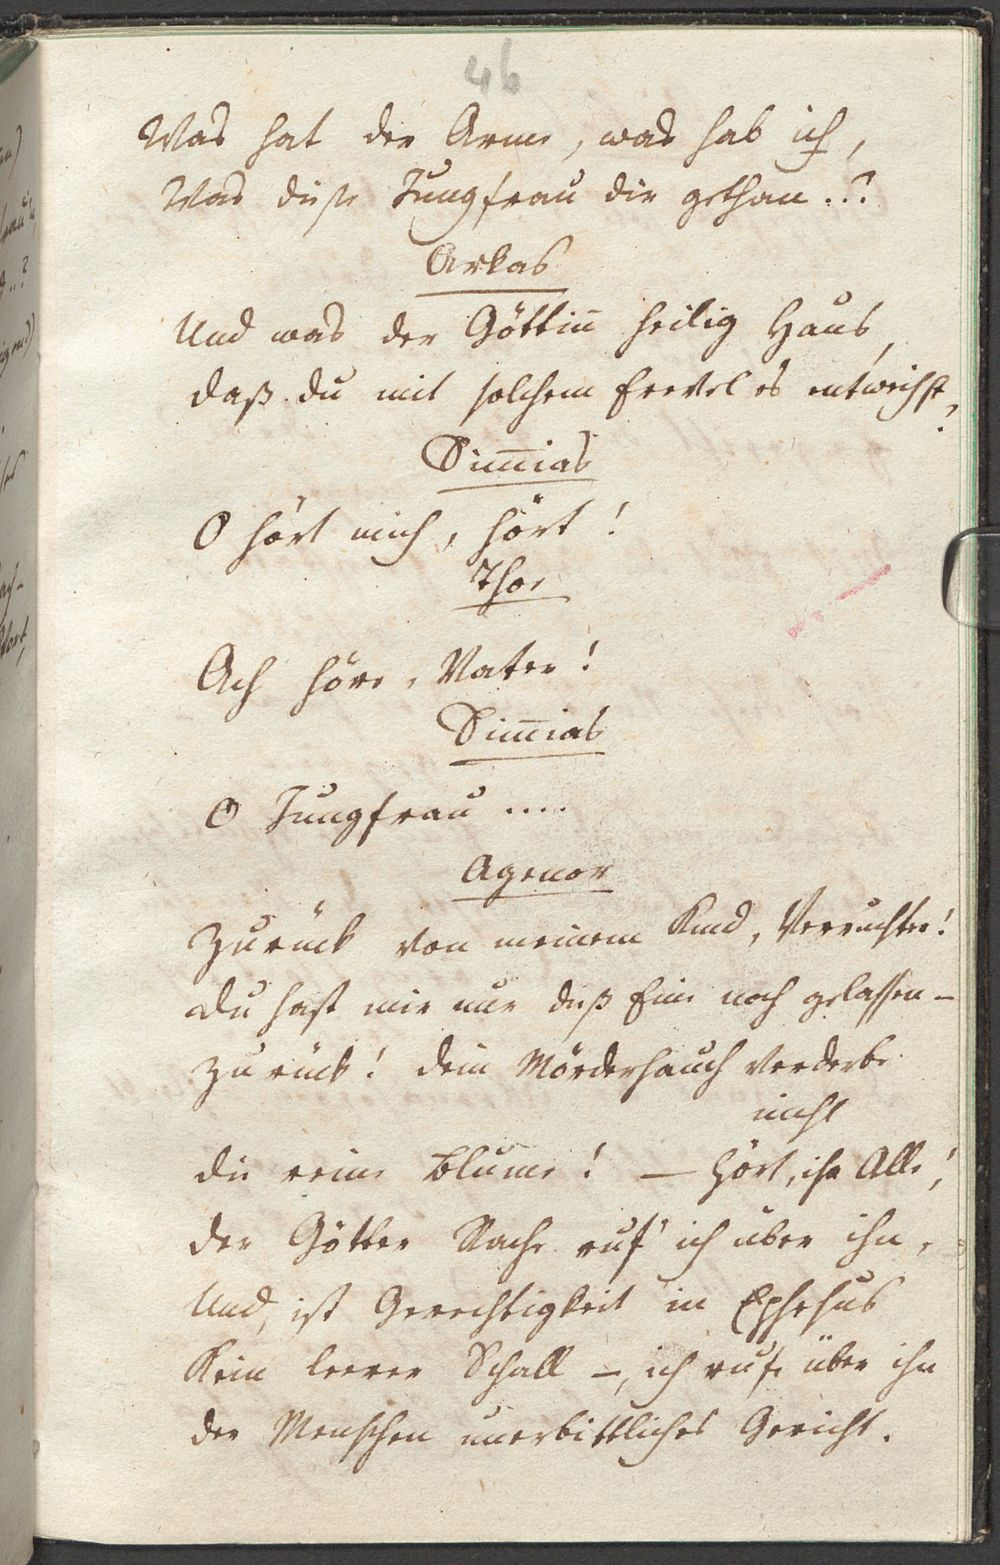 46
Was hat der Arme, was hab ich,
Was diese Jungfrau dir gethan..?
Arkas
Und was der Göttiñ heilig Haus,
daß du mit solchem Frevel es entweihst?
Sim̄ias
O hört mich, hört!
Thoe
Ach höre, Vater!
Sim̄ias
O Jungfrau ....
Agenor
Zurück von meinem Kind, Verruchter!
Du hast mir nur dieß Eine noch gelassen –
Zurück! dein Mörderhauch verderbe
nicht
die reine Blume! — Hört, ihr Alle!
der Götter Rache ruf' ich über ihn,
Und, ist Gerechtigkeit in Ephesus
Kein leerer Schall –, ich rufe über ihn
der Menschen unerbittliches Gericht.